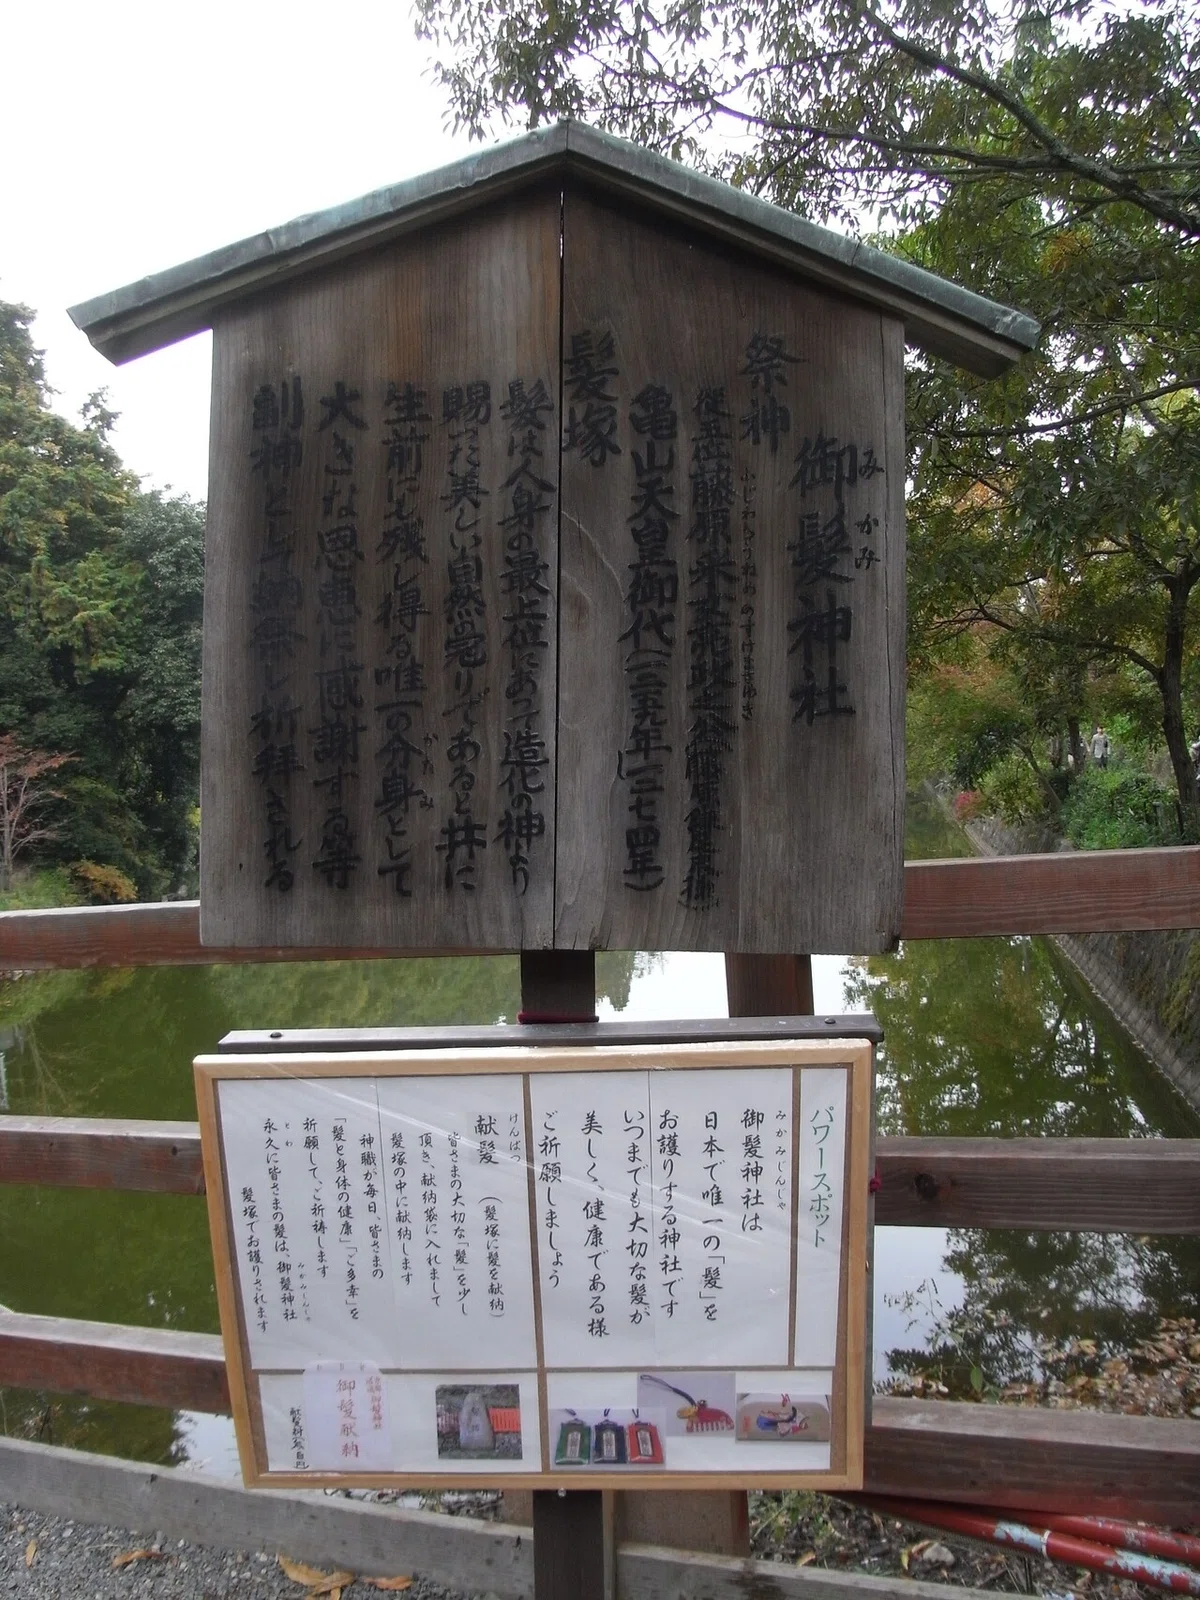 御髪神社
みかみ
祭神
従五位藤原采女亮政之公
ふじわらうねめのすけまさゆき
亀山天皇御代(一二五九年―一二七四年)
髪塚
髪は人身の最上位にあって造化の神より
賜った美しい自然の冠りであると共に
生前にも残し得る唯一の分身として
かたみ
大きな恩恵に感謝する為
副神として納祭し祈拝される
パワースポット
みかみじんじゃ
御髪神社は
日本で唯一の「髪」を
お護りする神社です
いつまでも大切な髪が
美しく、健康である様
ご祈願しましょう
けんぱつ
献髪 (髪塚に髪を献納)
皆さまの大切な「髪」を少し
頂き、献納袋に入れまして
髪塚の中に献納します
神職が毎日、皆さまの
「髪と身体の健康」「ご多幸」を
祈願して、ご祈祷します
とわ
永久に皆さまの髪は、御髪神社
みかみじんじゃ
髪塚でお護りされます
御髪献納